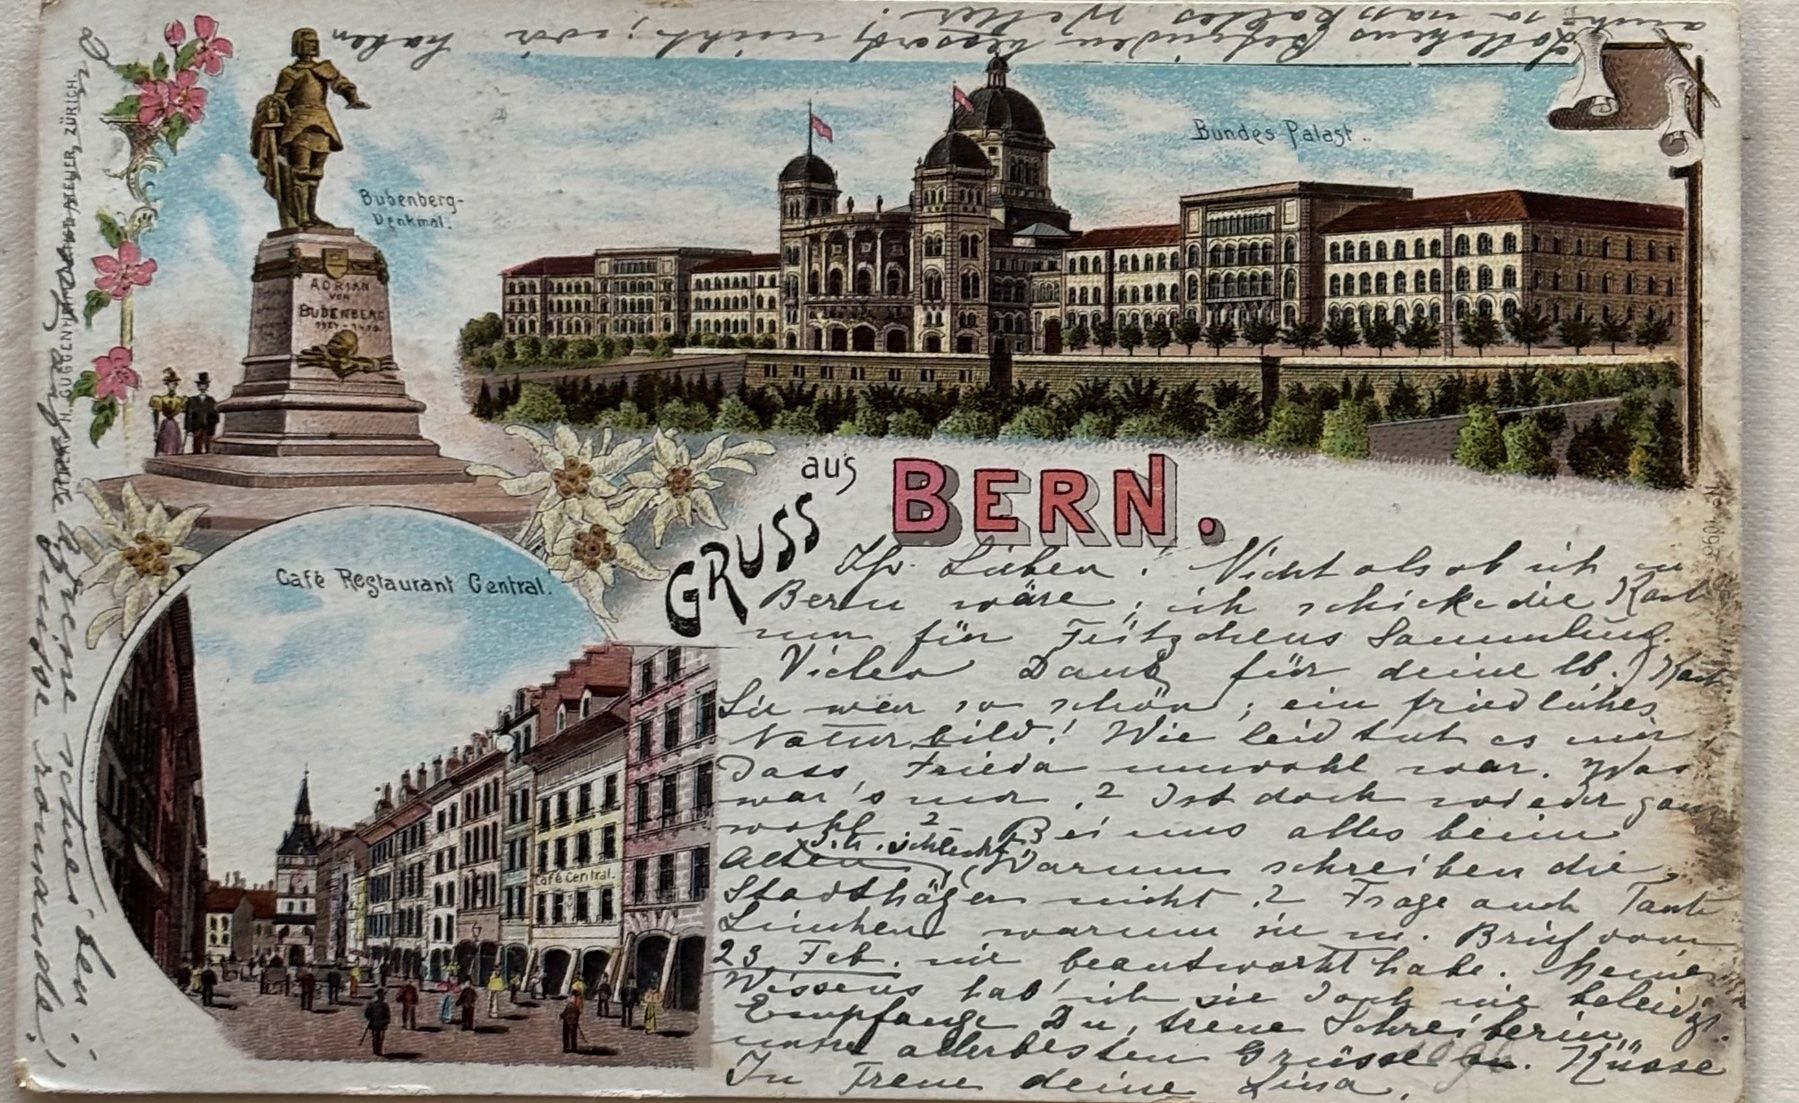 Bubenberg-
Denkmal.
Bundes Palast.
ADRIAN
VON
BUBENBERG
Café Restaurant Central.
Café Central.
GRUSS aus BERN.
Ihr Lieben! Nicht als ob ich in
Bern wäre; ich schicke die Kart
nur für Fritzchens Sammlung.
Vielen Dank für deine lb. Kart.
Sie war so schön; ein friedliches
Naturbild! Wie leid tut es mir
dass Frieda unwohl war. Was
war's nur? Ist doch wieder ganz
wohl? Bei uns alles beim
Alten, d. h. schlecht. Warum schreiben die
Stadthäger nicht? Frage auch Tante
Linchen warum sie m. Brief vom
23. Feb. nie beantwortet habe. Meines
Wissens hab' ich sie doch nie beleidigt.
Empfange Du, treue Schreiberin,
unsre allerbesten Grüsse u. Küsse
In Treue deine Lina.
haben
auch so nasskaltes Wetter!
Befinden besserts nicht; wir
einzige romande!
H. GUGGENHEIM ATELIER, ZÜRICH